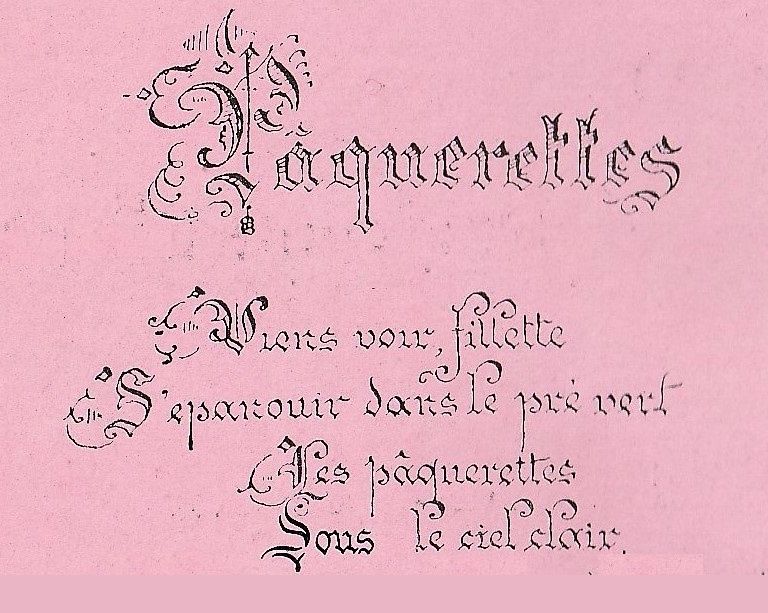 Pâquerettes
Viens voir, fillette
S'epanouir dans le pré vert
Les pâquerettes
Sous le ciel clair.